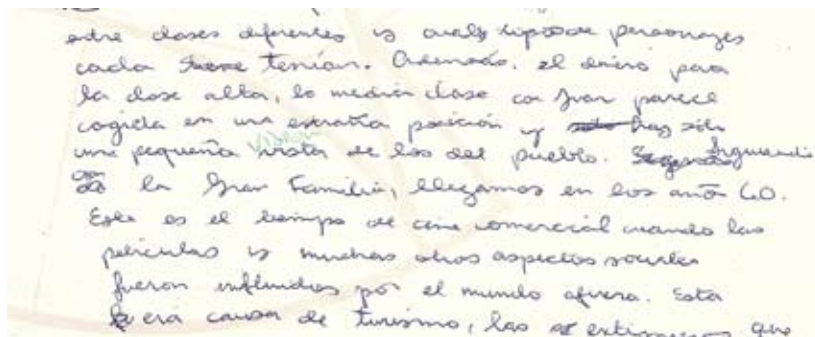 entre clases diferentes y cuales tipos de personajes
cada tenían. Además, el dinero para
la clase alta, la media clase con Juan parece
cogida en una extraña posición y hay sólo
una pequeña vista visión de los del pueblo. Siguiendo
con la Gran Familia, llegamos en los años 60.
Este es el tiempo de cine comercial cuando las
películas y muchas otros aspectos sociales
fueron influidos por el mundo afuera. Esta
era causa de turismo, las que